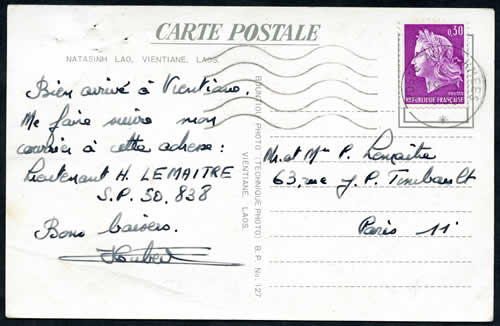 CARTE POSTALE
NATASINH LAO, VIENTIANE, LAOS.
Bien arrivé à Vientiane.
Me faire suivre mon
courrier à cette adresse :
Lieutenant H. LEMAITRE
S.P. 50.838
Bons baisers.
Hubert
BOUNTION PHOTO (TECHNIQUE PHOTO) B.P. No. 127
VIENTIANE, LAOS.
0,30
POSTES
REPUBLIQUE FRANÇAISE
Mr. et Mme P. Lemaître
63, rue J.P. Timbault
Paris 11